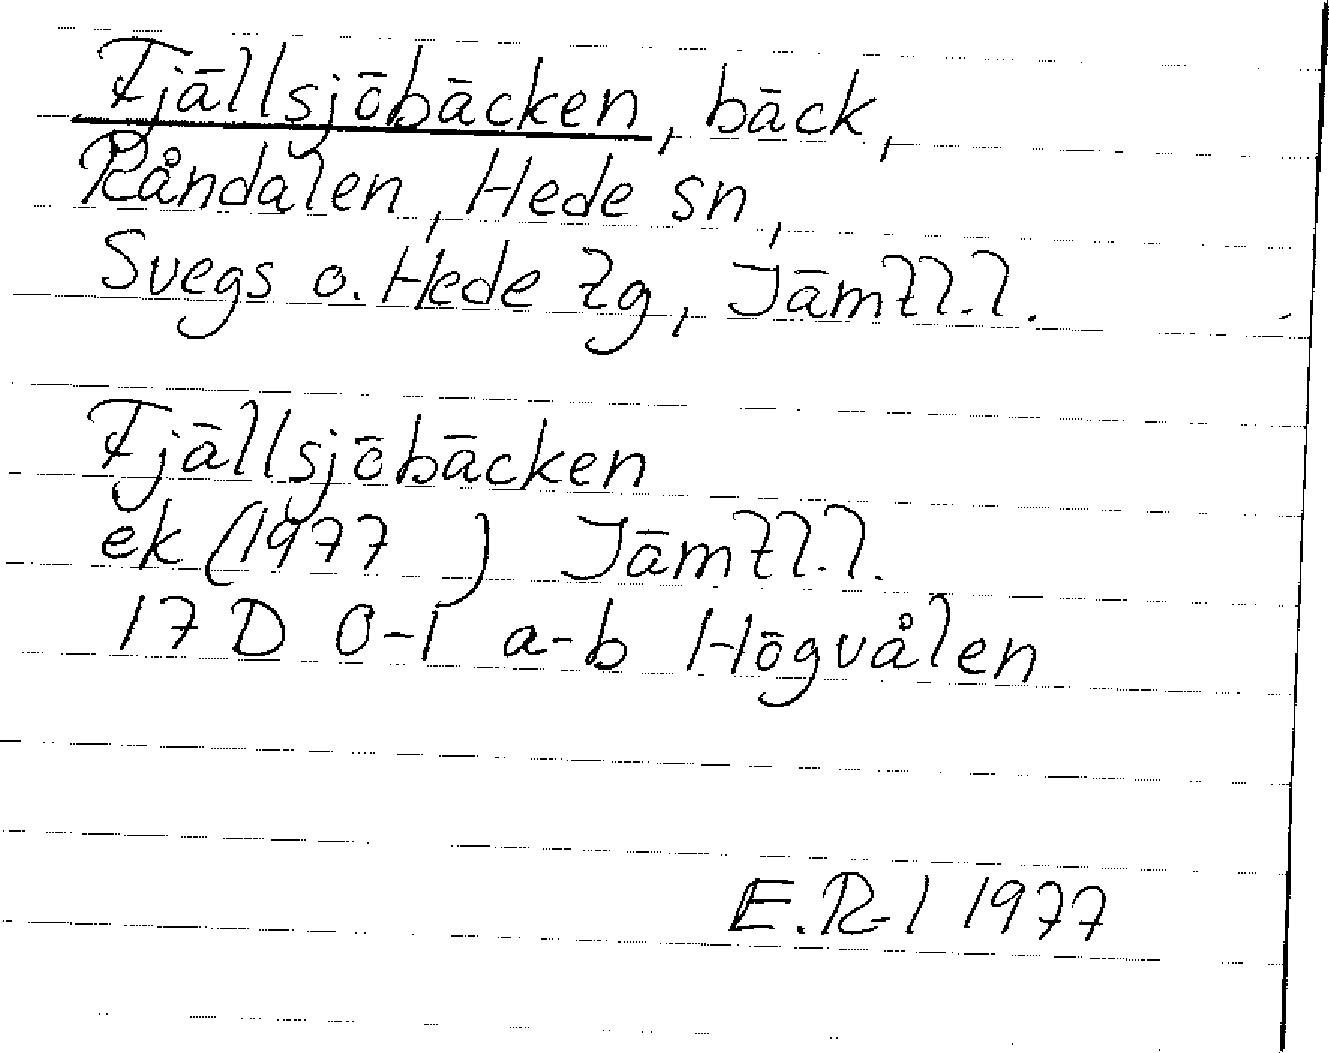 Fjällsjöbäcken, bäck,
Råndalen, Hede sn,
Svegs o. Hede tg, Jämtl.l.
Fjällsjöbäcken
ek (1977 ) Jämtl.l.
17 D 0-1 a-b Högvålen
E.R-l 1977